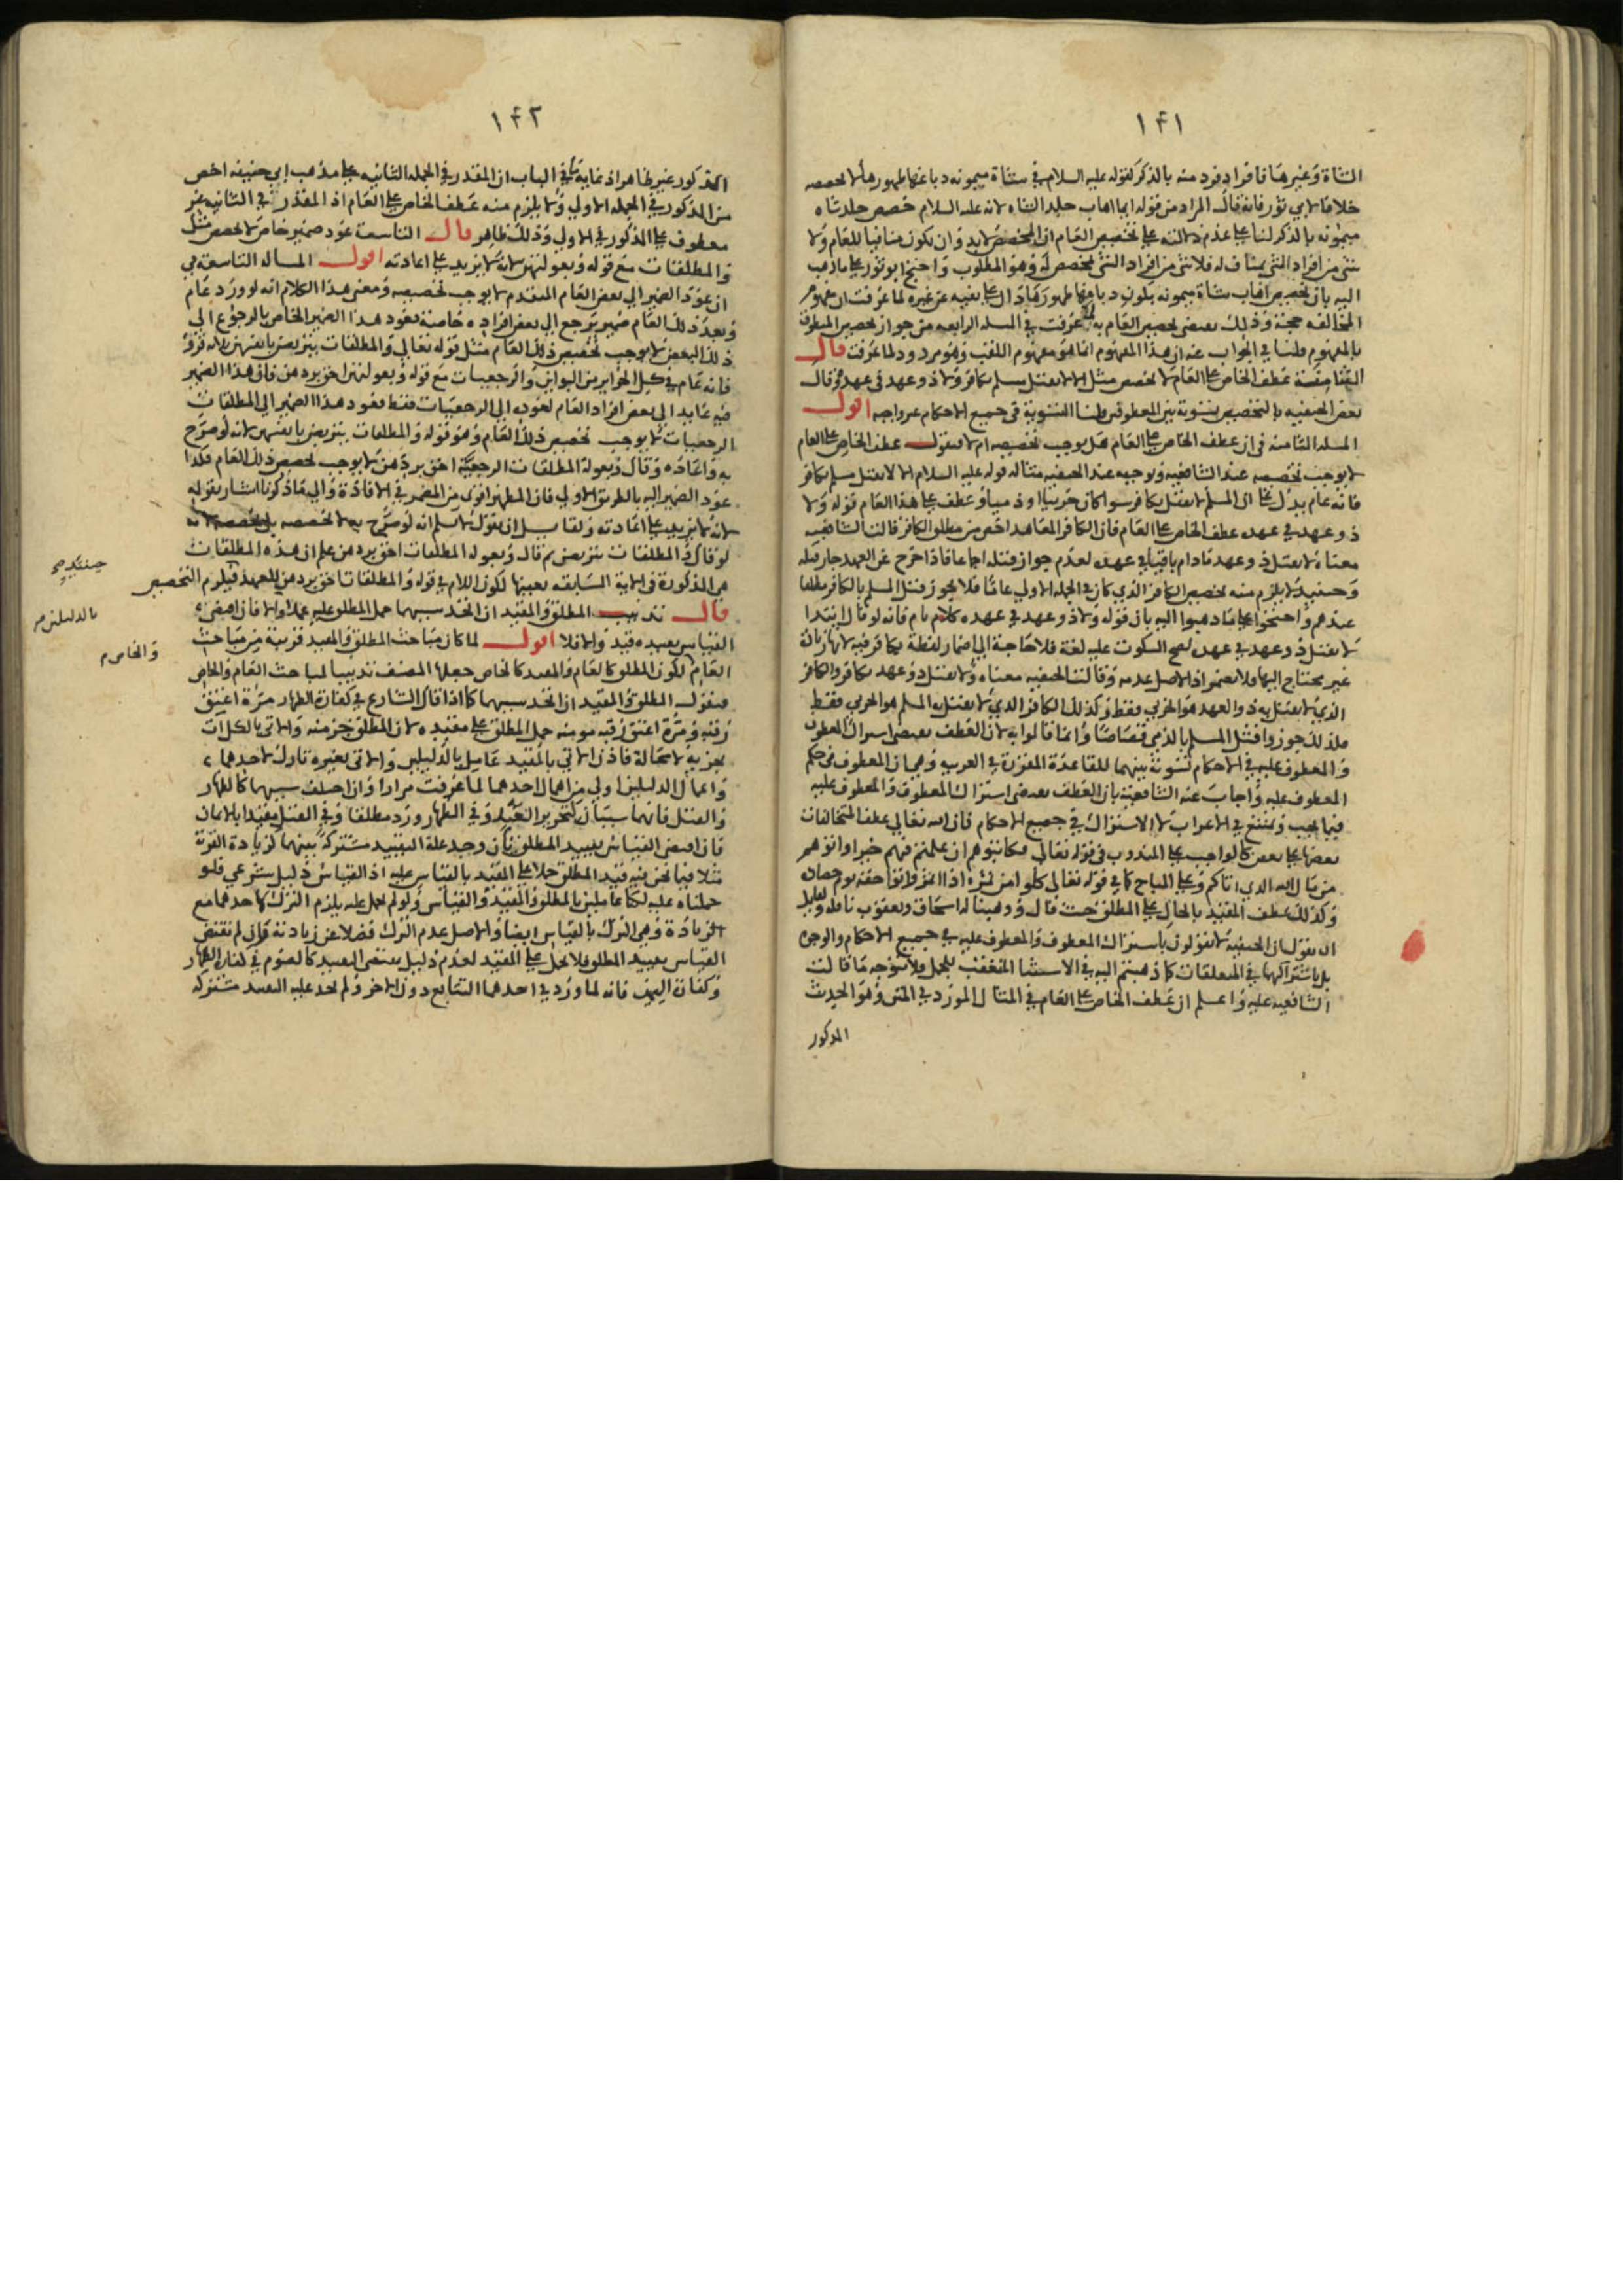 ١٤١
الشاة وغيرها فافراد فرد منه بالذكر كقوله عليه السلام في شاة ميمونه دباغها طهورها لا يخصصه
خلافا لابي ثور فانه قال المراد من قوله ايما اهاب جلد الشاه لانه عليه السلام خصص جلد شاه
ميمونه بالذكر لنا على عدم دلالته على تخصيص العام ان المخصص لا بد وان يكون منافيا للعام ولا
شئ من افراد الشئ بمناف له فلا شئ من افراد الشئ بمخصص له وهو المطلوب واحتج ابو ثور على ما ذهب
اليه بان تخصيص اهاب شاة ميمونه بكون دباغها طهورها دال على نفيه عن غيره لما عرفت ان مفهوم
المخالفه حجة وذلك يقتضى تخصيص العام به لما عرفت في المسله الرابعه من جواز تخصيص المنطوق
بالمفهوم قلنا في الجواب عنه ان هذا المفهوم انما هو مفهوم اللقب وهو مردود لما عرفت قال
الثامنة عطف الخاص على العام لا يخصص مثل الا لا يقتل مسلم بكافر ولا ذو عهد في عهده وقال
بعض الحنفيه بالتخصيص تسوية بين المعطوفين قلنا التسوية في جميع الاحكام غير واجبه اقول
المسله الثامنه في ان عطف الخاص على العام هل يوجب تخصيصه ام لا فنقول عطف الخاص على العام
لا يوجب تخصيصه عند الشافعيه ويوجبه عند الحنفيه مثاله قوله عليه السلام الا لا يقتل مسلم بكافر
فانه عام يدل على ان المسلم لا يقتل بكافر سوا كان حربيا او ذميا وعطف على هذا العام قوله ولا
ذو عهد في عهده عطف الخاص على العام فان الكافر المعاهد اخص من مطلق الكافر قالت الشافعيه
معناه لا يقتل ذو عهد مادام باقيا في عهده لعدم جواز قتله اجماعا فاذا خرج عن العهد جاز قتله
وحينئذ لا يلزم منه تخصيص الكافر الذي كان في الجمله الاولى عاما فلا يجوز قتل المسلم بالكافر مطلقا
عندهم واحتجوا على ما ذهبوا اليه بان قوله ولا ذو عهد في عهده كلام تام فانه لو قال ابتدا
لا يقتل ذو عهد في عهده لصح السكوت عليه لغة فلا حاجة الى اضمار لفظة بكافر فيه لانها زيادة
غير محتاج اليها فلا تضمر اذ الاصل عدمه وقالت الحنفيه معناه ولا يقتل ذو عهد بكافر والكافر
الذي لا يقتل به ذو العهد هو الحربي فقط وكذلك الكافر الذي لا يقتل به المسلم هو الحربي فقط
فلذلك جوزوا قتل المسلم بالذمي قصاصا وانما قالوا به لان العطف يقتضى اشتراك المعطوف
والمعطوف عليه في الاحكام تسوية بينهما للقاعدة المقررة في العربيه وهي ان المعطوف في حكم
المعطوف عليه واجاب عنه الشافعية بان العطف يقتضى اشتراك المعطوف والمعطوف عليه
فيما يجب ويمتنع في الاعراب لا الاشتراك في جميع الاحكام فان الله تعالى عطف المتخالفات
بعضها على بعض كالواجب على المندوب في قوله تعالى فكاتبوهم ان علمتم فيهم خيرا واتوهم
من مال الله الذي اتاكم وعلى المباح كما في قوله تعالى كلوا من ثمره اذا اثمر واتوا حقه يوم حصاده
وكذلك عطف المقيد بالحال على المطلق حيث قال ووهبنا له اسحاق ويعقوب نافلة ولقايل
ان يقول ان الحنفية لا يقولون باشتراك المعطوف والمعطوف عليه في جميع الاحكام والوجوه
بل باشتراكهما في المتعلقات كما ذهبتم اليه في الاستثنا المتعقب للجمل فلا يتوجه ما قالت
الشافعيه عليه واعلم ان عطف الخاص على العام في المثال المورد في المتن وهو الحديث
المذكور
١٤٢
المذكور غير ظاهر اذ غاية ما في الباب ان المقدر في الجمله الثانيه على مذهب ابي حنيفه اخص
من المذكور في الجمله الاولى ولا يلزم منه عطف الخاص على العام اذ المقدر في الثانيه غير
معطوف على المذكور في الاولى وذلك ظاهر قال التاسعة عود ضمير خاص لا يخصص مثل
والمطلقات مع قوله وبعولتهن لانه لا يزيد على اعادته اقول المساله التاسعة في
ان عود الضمير الى بعض العام المتقدم لا يوجب تخصيصه ومعنى هذا الكلام انه لو ورد عام
وبعد ذلك العام ضمير يرجع الى بعض افراده خاصة فعود هذا الضمير الخاص بالرجوع الى
ذلك البعض لا يوجب تخصيص ذلك العام مثل قوله تعالى والمطلقات يتربصن بانفسهن ثلاثة قروء
فانه عام في كل الحراير من البواين والرجعيات مع قوله وبعولتهن احق بردهن فان هذا الضمير
فيه عايد الى بعض افراد العام لعوده الى الرجعيات فقط فعود هذا الضمير الى المطلقات
الرجعيات لا يوجب تخصيص ذلك العام وهو قوله والمطلقات يتربصن بانفسهن لانه لو صرح
به واعاده وقال وبعولة المطلقات الرجعية احق بردهن لا يوجب تخصيص ذلك العام فكذا
عود الضمير اليه بالطريق الاولى فان المظهر اقوى من المضمر في الافادة والى ما ذكرنا اشار بقوله
لانه لا يزيد على اعادته ولقايل ان يقول لا نسلم انه لو صرح به لا يخصصه بل يخصصه لانه
لو قال والمطلقات يتربصن ثم قال وبعولة المطلقات احق بردهن علم ان هذه المطلقات
هي المذكورة في الاية السابقه بعينها لكون اللام في قوله والمطلقات احق بردهن للعهد فيلزم التخصيص
قال تذنيب المطلق والمقيد ان اتحد سببهما حمل المطلق عليه عملا والا فان اقتضى
القياس تقييده قيد والا فلا اقول لما كان مباحث المطلق والمقيد قريبة من مباحث
العام لكون المطلق كالعام والمقيد كالخاص جعلها المصنف تذنيبا لمباحث العام والخاص
فنقول المطلق والمقيد ان اتحد سببهما كما اذا قال الشارع في كفارة الظهار مرة اعتق
رقبه ومرة اعتق رقبه مومنه حمل المطلق على مقيده لان المطلق جز منه والاتي بالكل ات
بجزيه لا محالة فاذن الاتي بالمقيد عامل بالدليلين والاتي بغيره تارك لاحدهما
واعمال الدليلين اولى من اهمال احدهما لما عرفت مرارا وان اختلف سببهما كالظهار
والقتل فانهما سببان لتحرير العبد وفي الظهار ورد مطلقا وفي القتل مقيدا بالايمان
فان اقتضى القياس تقييد المطلق بان وجد علة التقييد مشتركة بينهما كزيادة القربة
مثلا فيما نحن فيه قيد المطلق حملا على المقيد بالقياس عليه اذ القياس دليل شرعي فلو
حملناه عليه لكنا عاملين بالمطلق والمقيد والقياس ولو لم نحمل عليه يلزم الترك لاحدهما مع
الزيادة وهي الترك بالقياس ايضا والاصل عدم الترك فضلا عن زيادته وان لم يقتض
القياس تقييد المطلق فلا يحمل على المقيد لعدم دليل يقتضى التقييد كالصوم في كفارة الظهار
وكفارة اليمين فانه لما ورد في احدهما التتابع دون الاخر ولم نجد علة التقييد مشتركه
بالدليلين
والخاص م